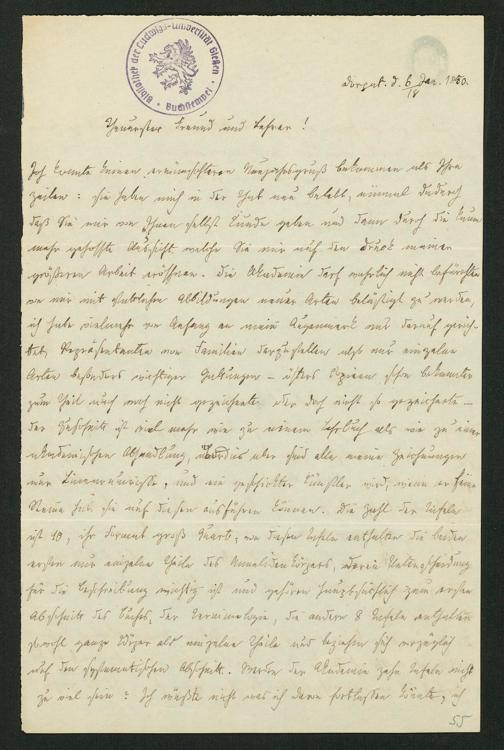 Bibliothek der Ludwigs-Universität Gießen
Buchstempel
Dorpat. d. 6/18 Jan. 1850.
Theuerster Freund und Lehrer!
Ich konnte keinen erwünschteren Neujahrsgruß bekommen als Ihre
Zeilen: sie haben mich in der That neu belebt, einmal dadurch
daß Sie mir von Ihnen selbst Kunde geben und dann durch die kaum
mehr gehoffte Aussicht, welche Sie mir auf den Druck meiner
größeren Arbeit eröffnen. Die Akademie darf wahrlich nicht befürchten
von mir mit Abbildungen neuer Arten belästigt zu werden,
ich habe vielmehr von Anfang an mein Augenmerk nur darauf gerich-
tet, Repräsentanten von Familien darzustellen und nur einzelne
Arten besonders wichtiger Gattungen – öfters Copieen schon bekannter
zum Theil auch noch nicht gezeichnete oder doch nicht so gezeichnete –
der Zuschnitt ist viel mehr wie zu einem Lehrbuch als wie zu einer
akademischen Abhandlung, überdies aber sind alle meine Zeichnungen
nur Linearumrisse, und ein geschickter Künstler wird, wenn er
Steine hat, sie auf diesen ausführen können. Die Zahl der Tafeln
ist 10, ihr Format groß Quart, von diesen Tafeln enthalten die beiden
ersten nur einzelne Theile des Annelidenkörpers, deren Unterscheidung
für die Beschreibung wichtig ist und gehören hauptsächlich zum ersten
Abschnitt des Buchs, der Terminologie, die andern 8 Tafeln enthalten
sowohl ganze Körper als einzelne Theile und beziehen sich vorzüglich
auf den systematischen Abschnitt. Werden der Akademie zehn Tafeln nicht
zu viel sein? Ich wüßte nicht was ich davon fortlassen könnte, ich
55